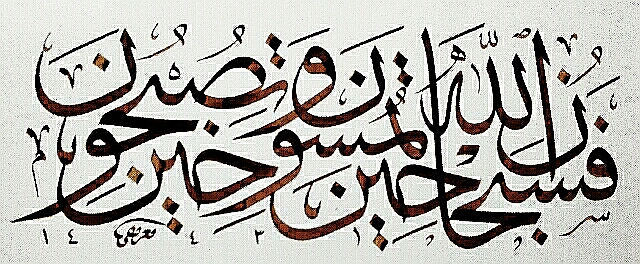 فسبحان الله حين تمسون وحين تصبحون
١٤٢١